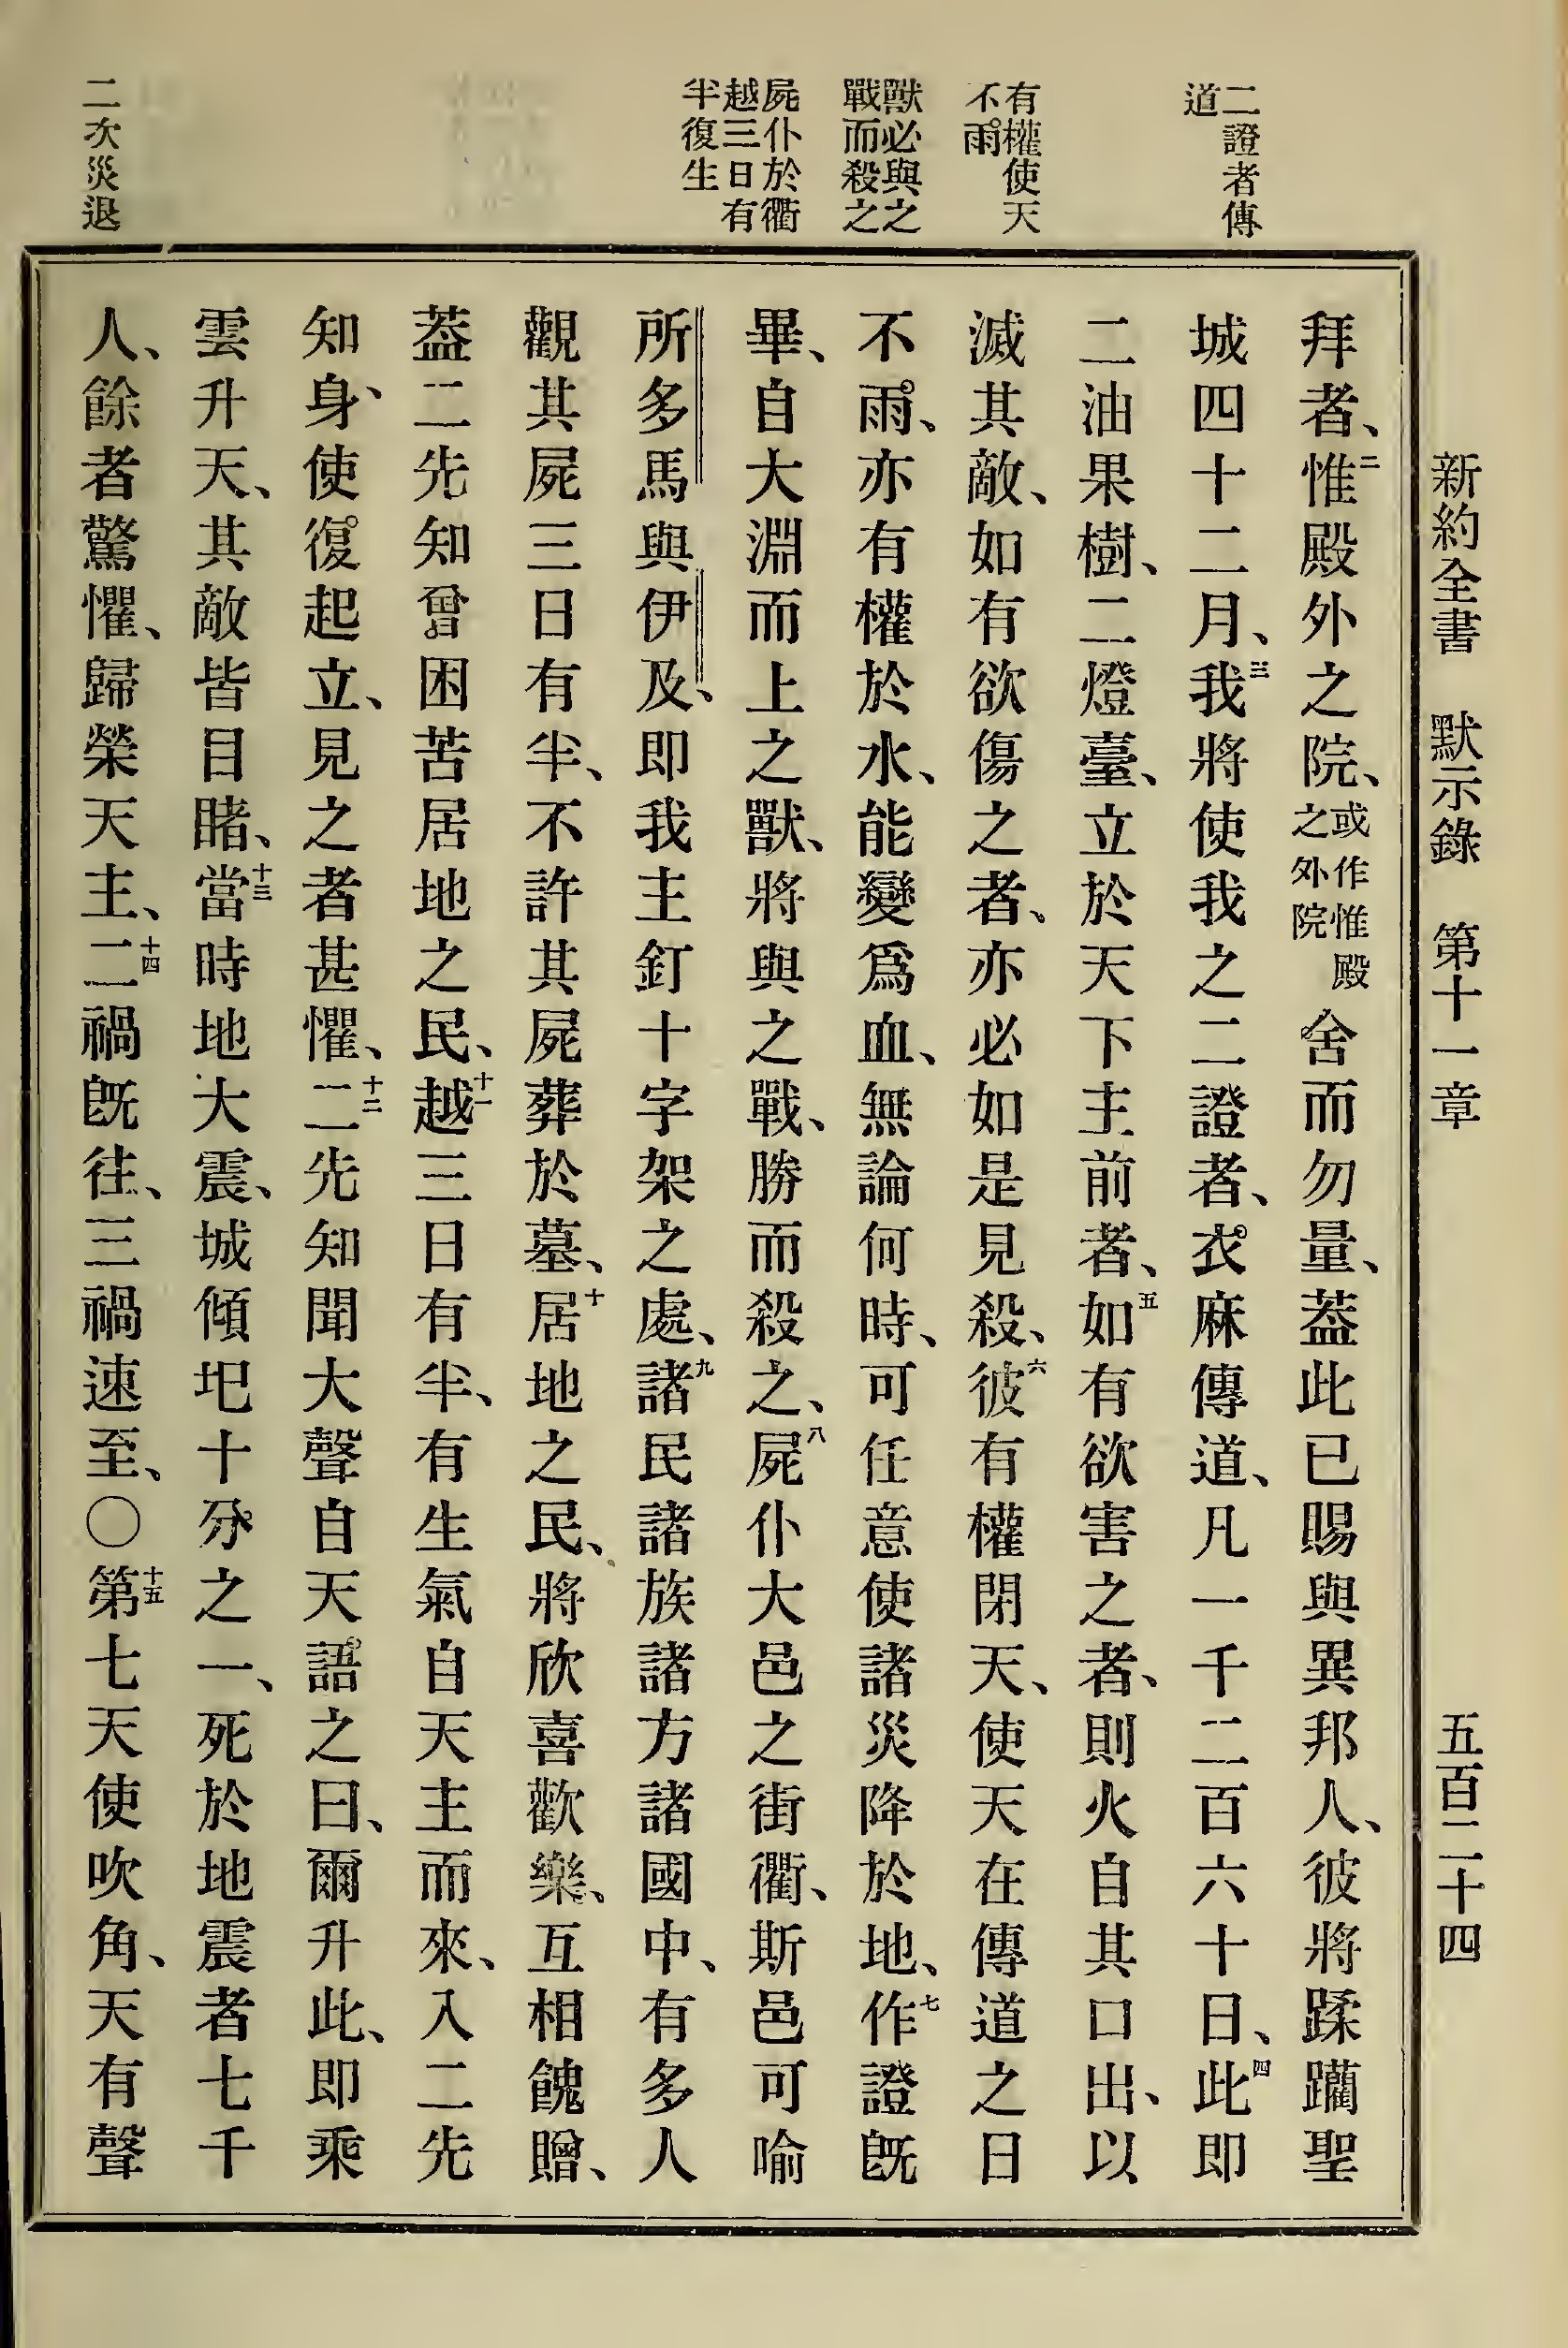 新約全書　默示錄　第十一章　五百二十四
二證者傳
道
有權使天
不雨
獸必與之
戰而殺之
屍仆於衢
越三日有
半復生
二次災退
拜者、二惟殿外之院、或作惟殿之外院舍而勿量、葢此已賜與異邦人、彼將蹂躪聖
城四十二月、三我將使我之二證者、衣麻傳道、凡一千二百六十日、四此即
二油果樹、二燈臺、立於天下主前者、五如有欲害之者、則火自其口出、以
滅其敵、如有欲傷之者、亦必如是見殺、六彼有權閉天、使天在傳道之日
不雨、亦有權於水、能變爲血、無論何時、可任意使諸災降於地、七作證旣
畢、自大淵而上之獸、將與之戰、勝而殺之、八屍仆大邑之街衢、斯邑可喻
所多馬與伊及、即我主釘十字架之處、九諸民諸族諸方諸國中、有多人
觀其屍三日有半、不許其屍葬於墓、十居地之民、將欣喜歡樂、互相餽贈、
葢二先知曾困苦居地之民、十一越三日有半、有生氣自天主而來、入二先
知身、使復起立、見之者甚懼、十二二先知聞大聲自天語之曰、爾升此、即乘
雲升天、其敵皆目睹、十三當時地大震、城傾圮十分之一、死於地震者七千
人、餘者驚懼、歸榮天主、十四二禍旣往、三禍速至、〇十五第七天使吹角、天有聲